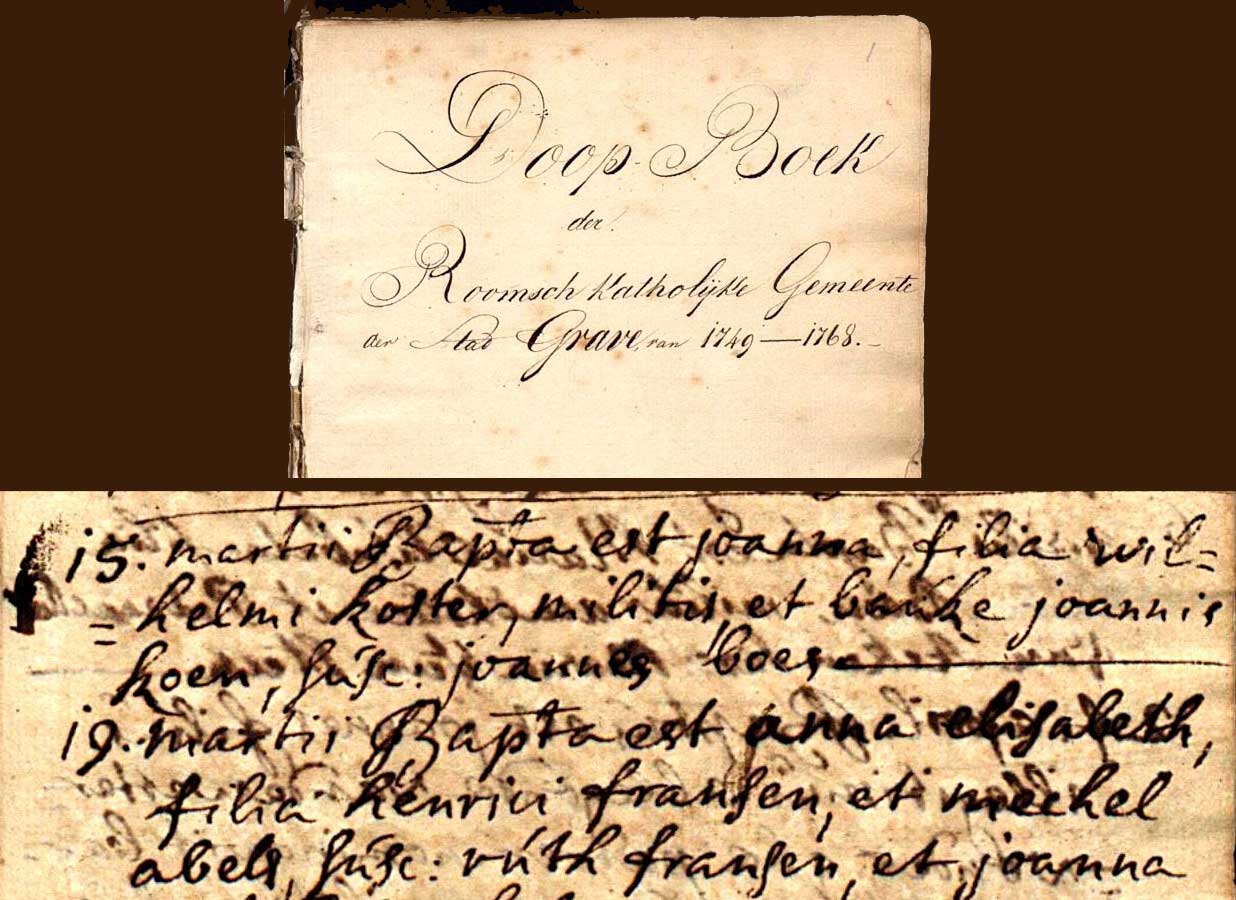 1
Doop-Boek
der
Roomsch Katholijke Gemeente
der Stad Grave, van 1749—1768.
15. martii Bapta est joanna, filia wil=
=helmi koster, militis, et baúke joannis
koen, súsc: joannes boes
19. martii Bapta est anna elisabeth,
filia henrici fransen, et mechel
abels, súsc: rúth fransen, et joanna